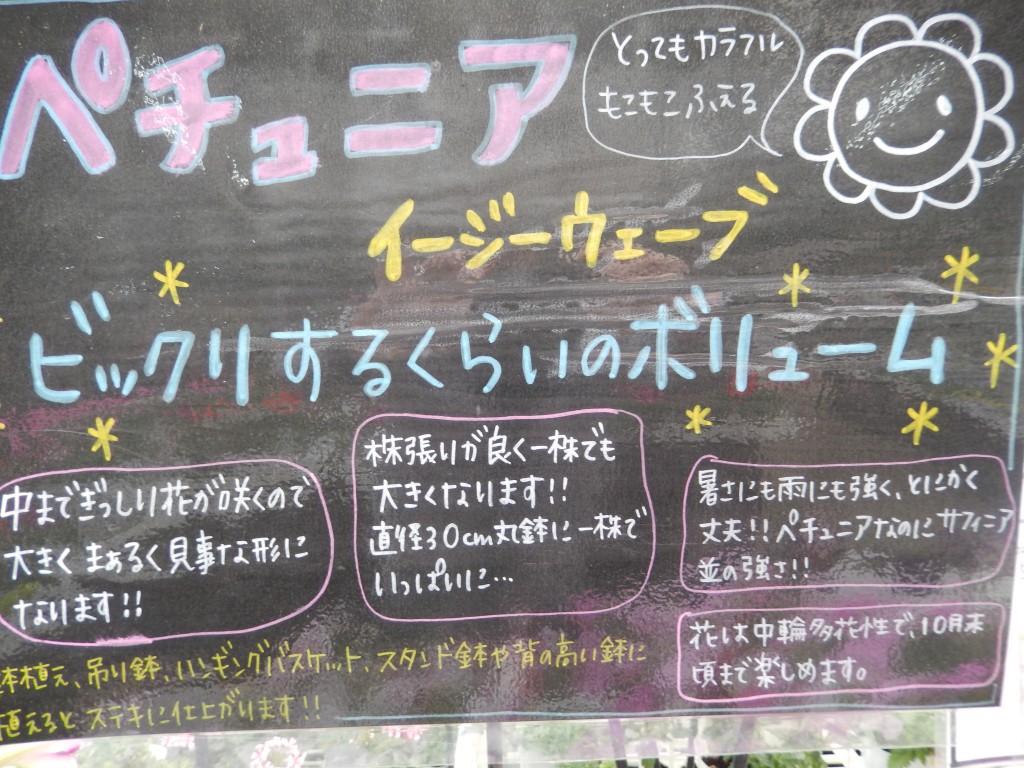 ペチュニア
とってもカラフル
もこもこふえる
イージーウェーブ
ビックリするくらいのボリューム
中までぎっしり花が咲くので
大きくまぁるく見事な形に
なります!!
株張りが良く一株でも
大きくなります!!
直径30cm丸鉢に一株で
いっぱいに…
暑さにも雨にも強く、とにかく
丈夫!!ペチュニアなのにサフィニア
並の強さ!!
花は中輪多花性で、10月末
頃まで楽しめます。
鉢植え、吊り鉢、ハンギングバスケット、スタンド鉢や背の高い鉢に
植えるとステキに仕上がります!!